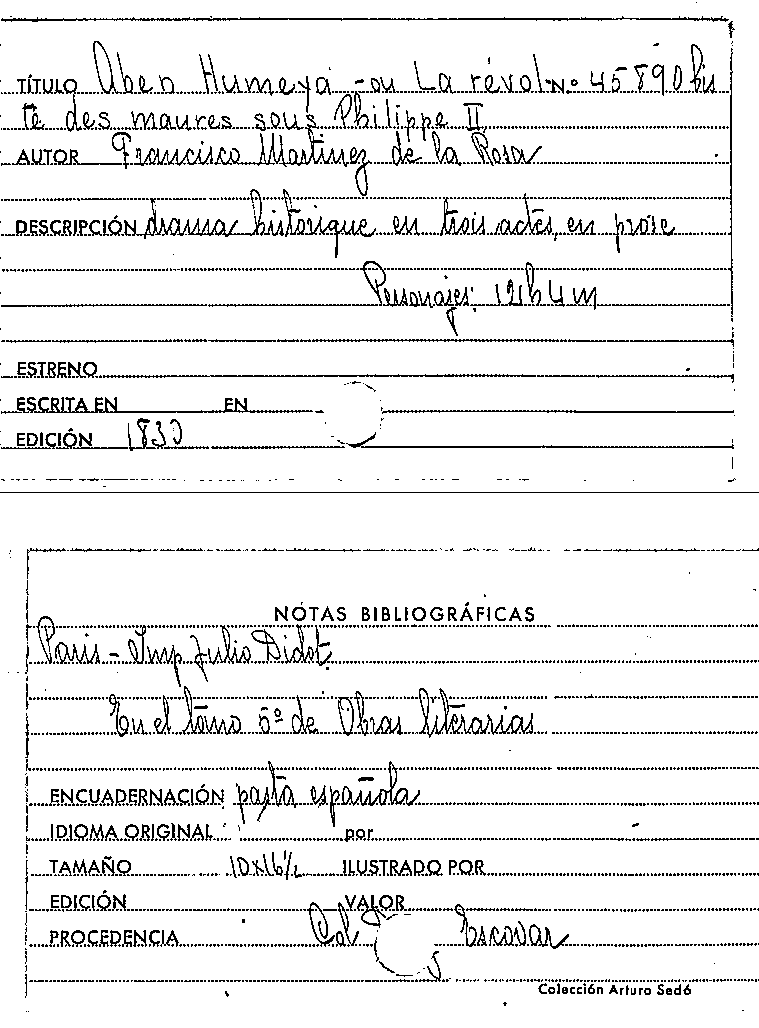 TÍTULO Aben Humeya - ou La révol- Nº 45890 bis
te des maures sous Philippe II
AUTOR Francisco Martinez de la Rosa
DESCRIPCIÓN drama historique en trois actes, en prose
Personajes: 12 h 4 m
ESTRENO
ESCRITA EN EN
EDICIÓN 1830
NOTAS BIBLIOGRÁFICAS
Paris - Imp. Julio Didot.
En el tomo 5º de Obras literarias
ENCUADERNACIÓN pasta española
IDIOMA ORIGINAL por
TAMAÑO 10x16½ ILUSTRADO POR
EDICIÓN VALOR
PROCEDENCIA Col Escovar
Colección Arturo Sedó